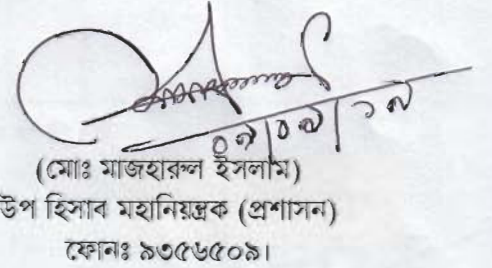 ০৯|০৯|১৯
(মোঃ মাজহারুল ইসলাম)
উপ হিসাব মহানিয়ন্ত্রক (প্রশাসন)
ফোনঃ ৯৩৫৬৫০৯।